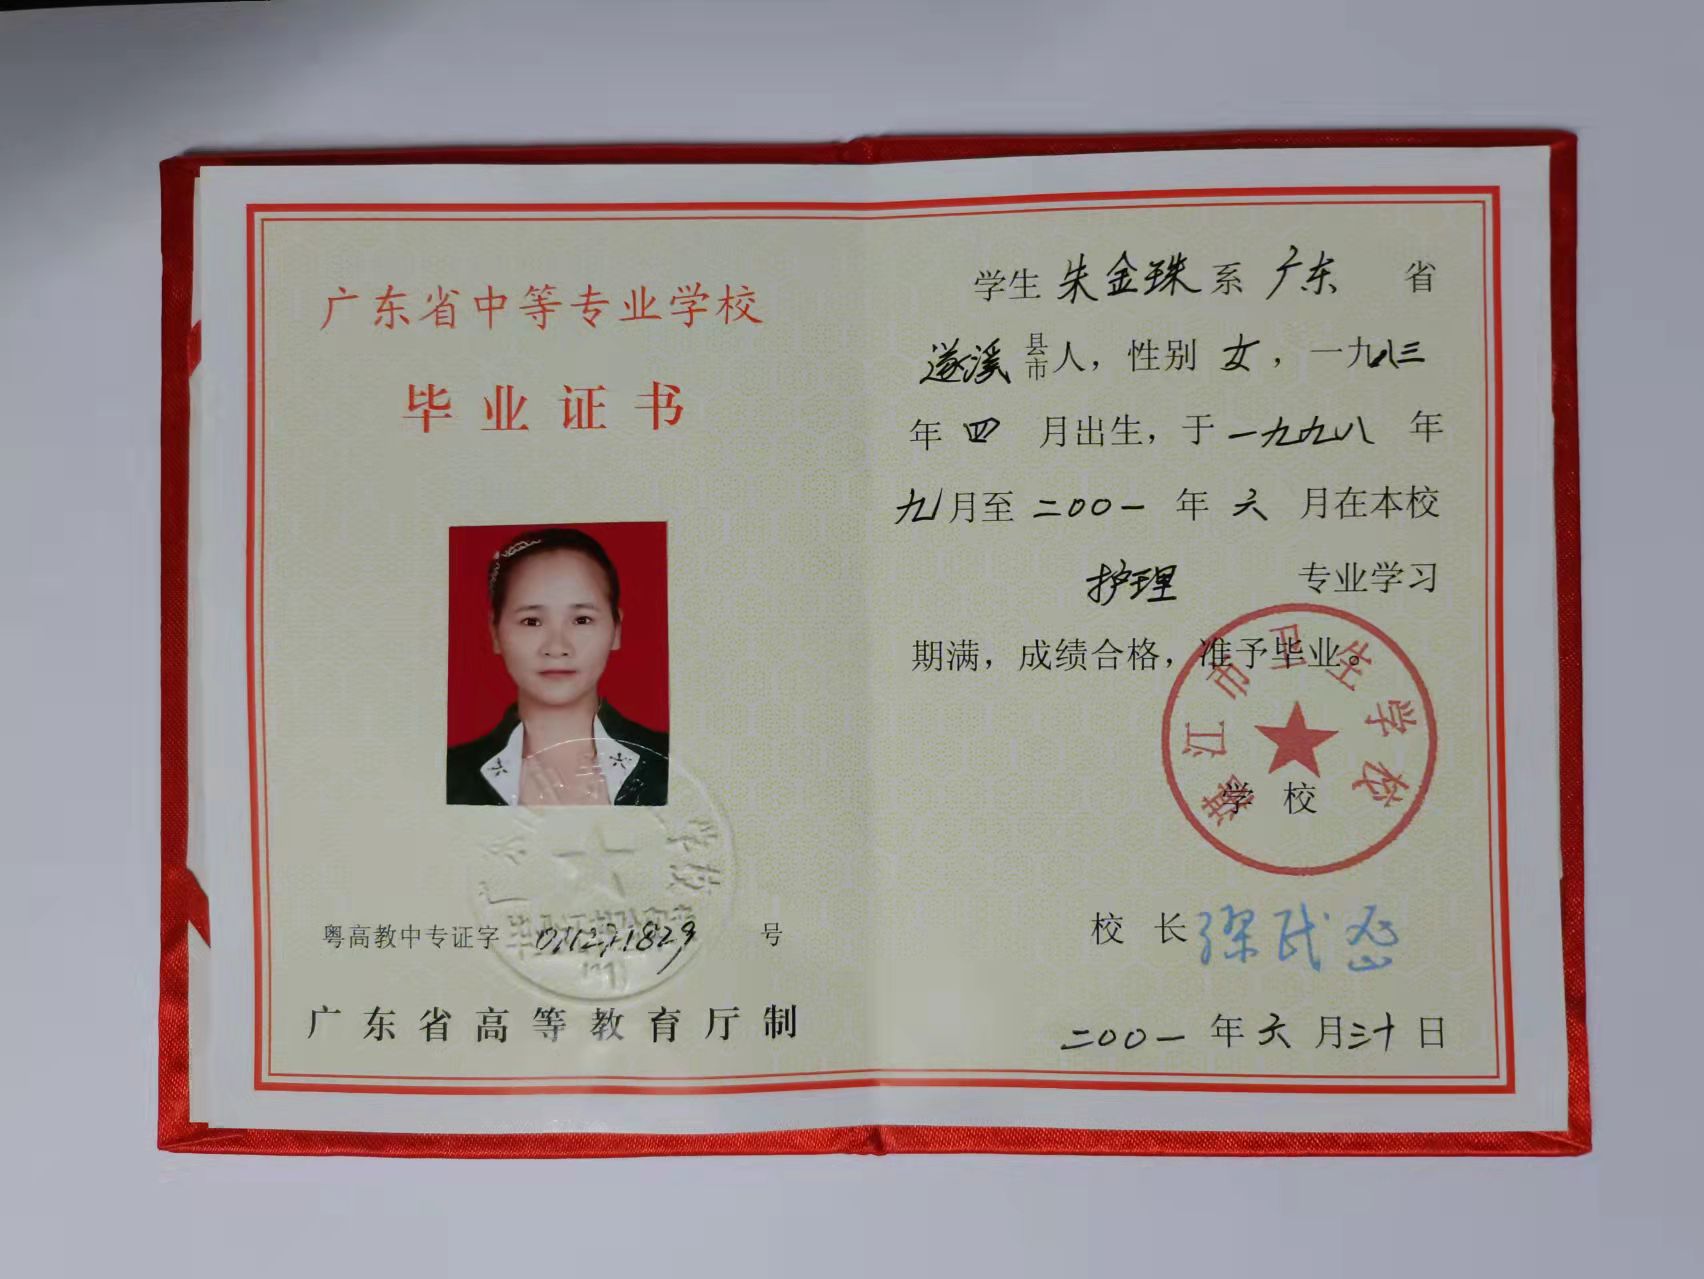 广东省中等专业学校
毕业证书
粤高教中专证字 号
广东省高等教育厅制
学生 朱金珠 系 广东 省
遂溪 县市人，性别 女，一九八三
年 四 月出生，于 一九九八 年
九月至 二00一 年 六 月在本校
护理 专业学习
期满，成绩合格，准予毕业。
湛江市卫生学校
学校
校长
二00一 年 六 月三十日